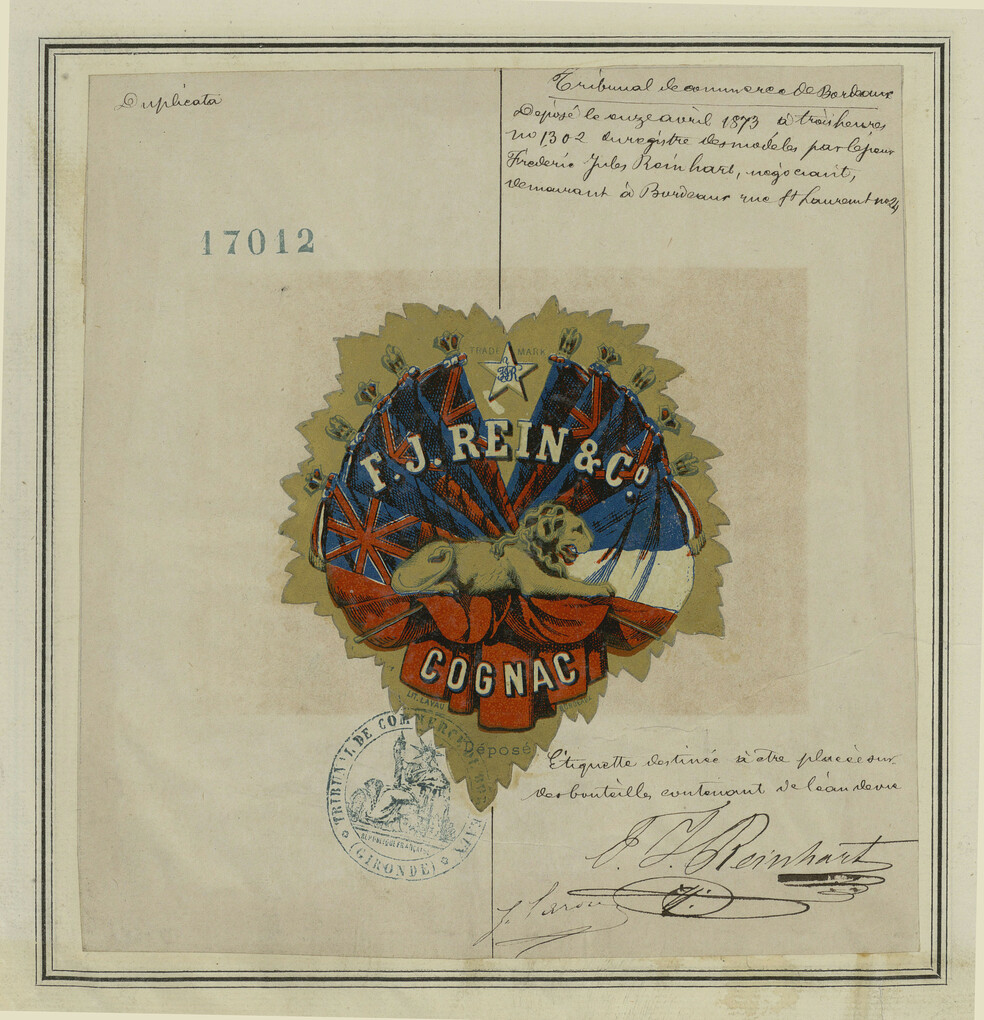 Duplicata
Tribunal de commerce de Bordeaux
Déposé le onze avril 1873 à trois heures
no 1302 du registre des modèles par le sieur
Fréderic Jules Reinhart, négociant,
demeurant à Bordeaux rue St Laurent no 24
17012
TRADE MARK
FJR
F. J. REIN & Co.
COGNAC
LIT. LAVAU
Déposé
TRIBUNAL DE COMMERCE DE BORDEAUX
RÉPUBLIQUE FRANÇAISE
(GIRONDE)
Etiquette destinée à être placée sur
des bouteilles contenant de l'eau de vie
F. J. Reinhart